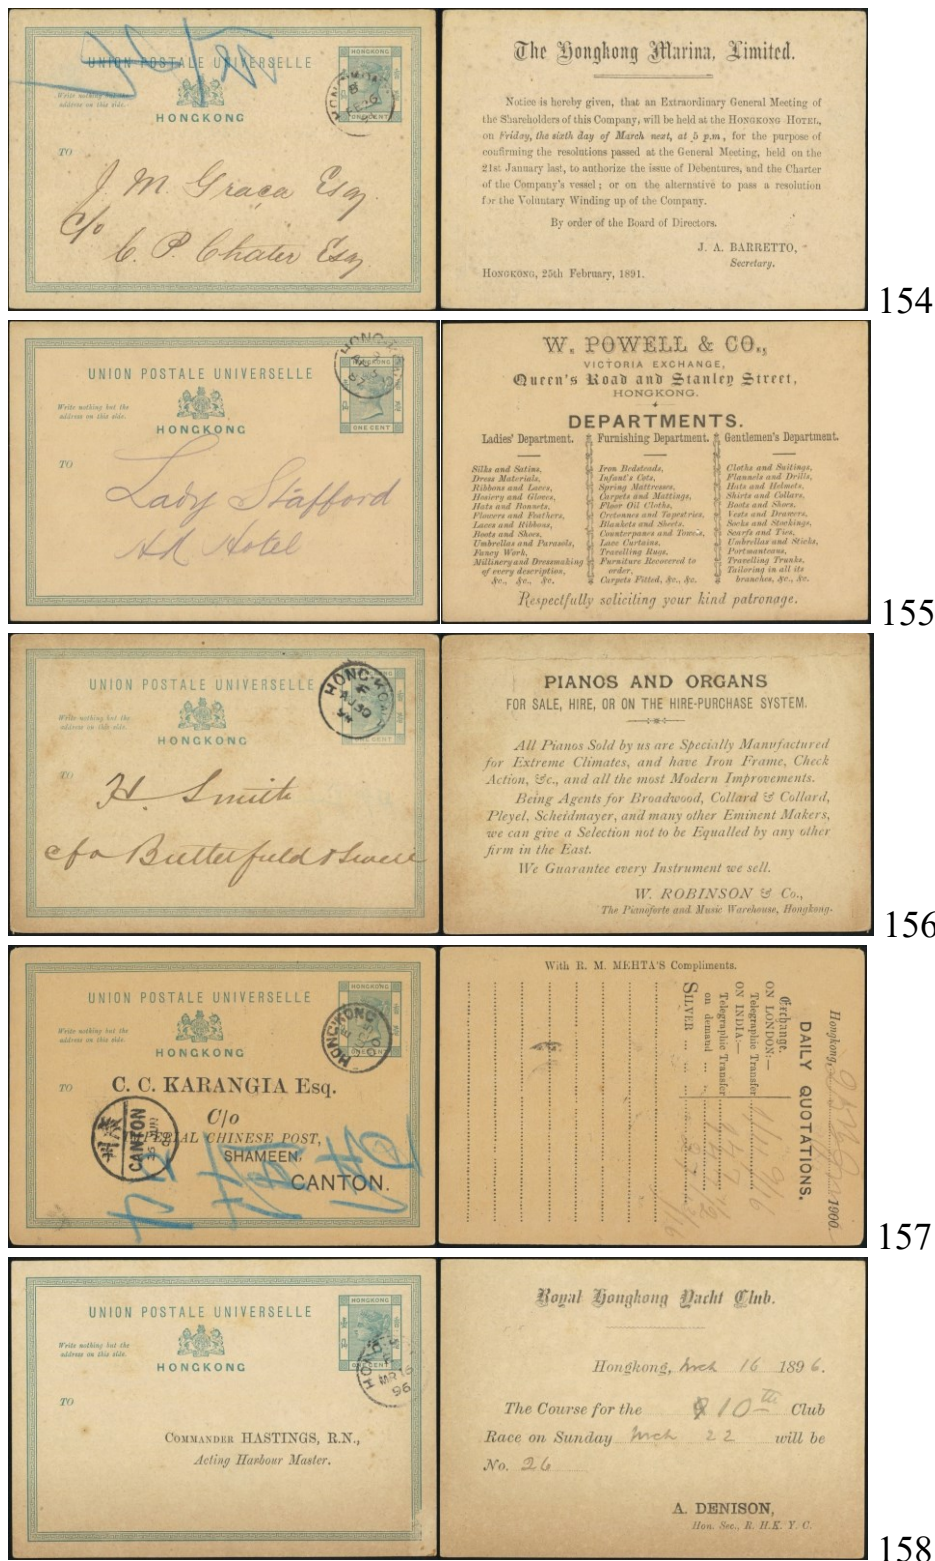 UNION POSTALE UNIVERSELLE
HONGKONG
Write nothing but the
address on this side.
HONGKONG
ONE CENT
TO
J. M. Graça Esq
c/o
C. P. Chater Esq
The Hongkong Marina, Limited.
Notice is hereby given, that an Extraordinary General Meeting of
the Shareholders of this Company, will be held at the HONGKONG HOTEL,
on Friday, the sixth day of March next, at 5 p.m, for the purpose of
confirming the resolutions passed at the General Meeting, held on the
21st January last, to authorize the issue of Debentures, and the Charter
of the Company's vessel; or on the alternative to pass a resolution
for the Voluntary Winding up of the Company.
By order of the Board of Directors.
J. A. BARRETTO,
Secretary.
HONGKONG, 25th February, 1891.
154
UNION POSTALE UNIVERSELLE
Write nothing but the
address on this side.
HONGKONG
ONE CENT
TO
Lady Stafford
Hotel
W. POWELL & CO.,
VICTORIA EXCHANGE,
Queen's Road and Stanley Street,
HONGKONG.
DEPARTMENTS.
Ladies' Department.
Silks and Satins,
Dress Materials,
Ribbons and Laces,
Hosiery and Gloves,
Hats and Bonnets,
Flowers and Feathers,
Laces and Ribbons,
Boots and Shoes,
Umbrellas and Parasols,
Fancy Work.
Millinery and Dressmaking
of every description,
&c., &c., &c.
Furnishing Department.
Iron Bedsteads,
Infant's Cots,
Spring Mattresses,
Carpets and Mattings,
Floor Oil Cloths,
Cretonnes and Tapestries,
Blankets and Sheets.
Counterpanes and Towels,
Lace Curtains.
Travelling Rugs.
Furniture Recovered to
order,
Carpets Fitted, &c., &c.
Gentlemen's Department.
Cloths and Suitings,
Flannels and Drills,
Hats and Helmets,
Shirts and Collars,
Boots and Shoes,
Vests and Drawers,
Socks and Stockings,
Scarfs and Ties,
Umbrellas and Sticks,
Portmanteaus,
Travelling Trunks,
Tailoring in all its
branches, &c., &c.
Respectfully soliciting your kind patronage.
155
UNION POSTALE UNIVERSELLE
HONG-KONG
Write nothing but the
address on this side.
HONGKONG
ONE CENT
TO
H. Smith
c/o Butterfield & Swire
PIANOS AND ORGANS
FOR SALE, HIRE, OR ON THE HIRE-PURCHASE SYSTEM.
All Pianos Sold by us are Specially Manufactured
for Extreme Climates, and have Iron Frame, Check
Action, &c., and all the most Modern Improvements.
Being Agents for Broadwood, Collard & Collard,
Pleyel, Scheidmayer, and many other Eminent Makers,
we can give a Selection not to be Equalled by any other
firm in the East.
We Guarantee every Instrument we sell.
W. ROBINSON & Co.,
The Pianoforte and Music Warehouse, Hongkong.
156
UNION POSTALE UNIVERSELLE
HONGKONG
Write nothing but the
address on this side.
HONGKONG
TO
C. C. KARANGIA Esq.
C/o
IMPERIAL CHINESE POST,
SHAMEEN,
CANTON.
CANTON
With R. M. MEHTA'S Compliments.
Hongkong, 1900.
DAILY QUOTATIONS.
Exchange.
ON LONDON:—
Telegraphic Transfer
ON INDIA:—
Telegraphic Transfer
on demand
SILVER
157
UNION POSTALE UNIVERSELLE
HONGKONG
Write nothing but the
address on this side.
HONGKONG
ONE CENT
MR 16
96
TO
COMMANDER HASTINGS, R.N.,
Acting Harbour Master.
Royal Hongkong Yacht Club.
Hongkong, Mch 16 1896.
The Course for the 10th Club
Race on Sunday Mch 22 will be
No. 26
A. DENISON,
Hon. Sec., R. H.K. Y. C.
158